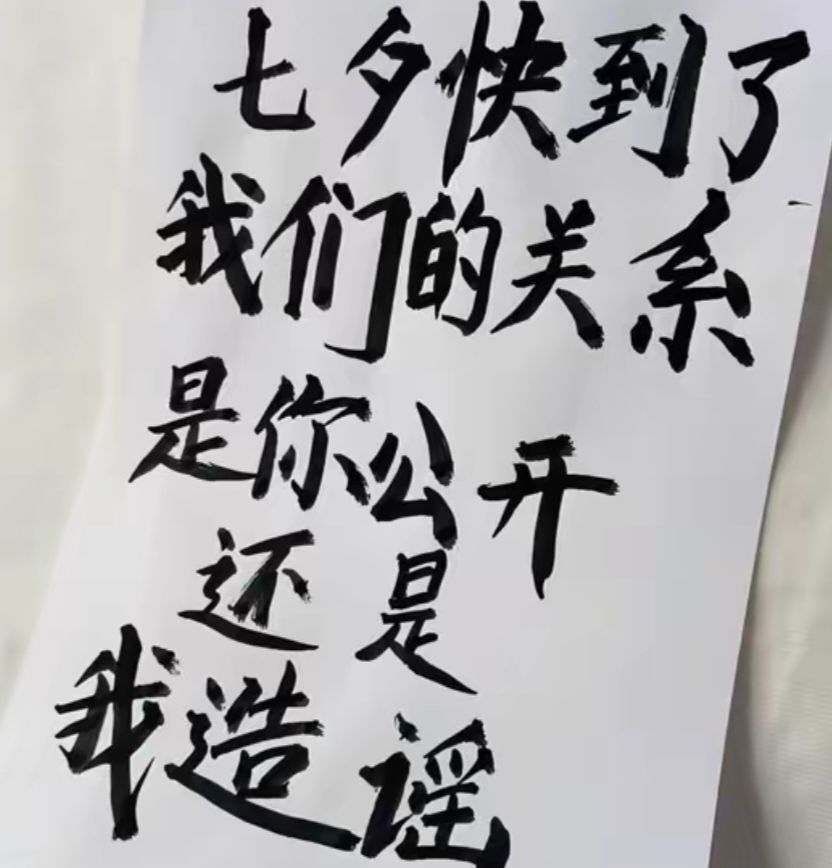 七夕快到了
我们的关系
是你公开
还是
我造谣